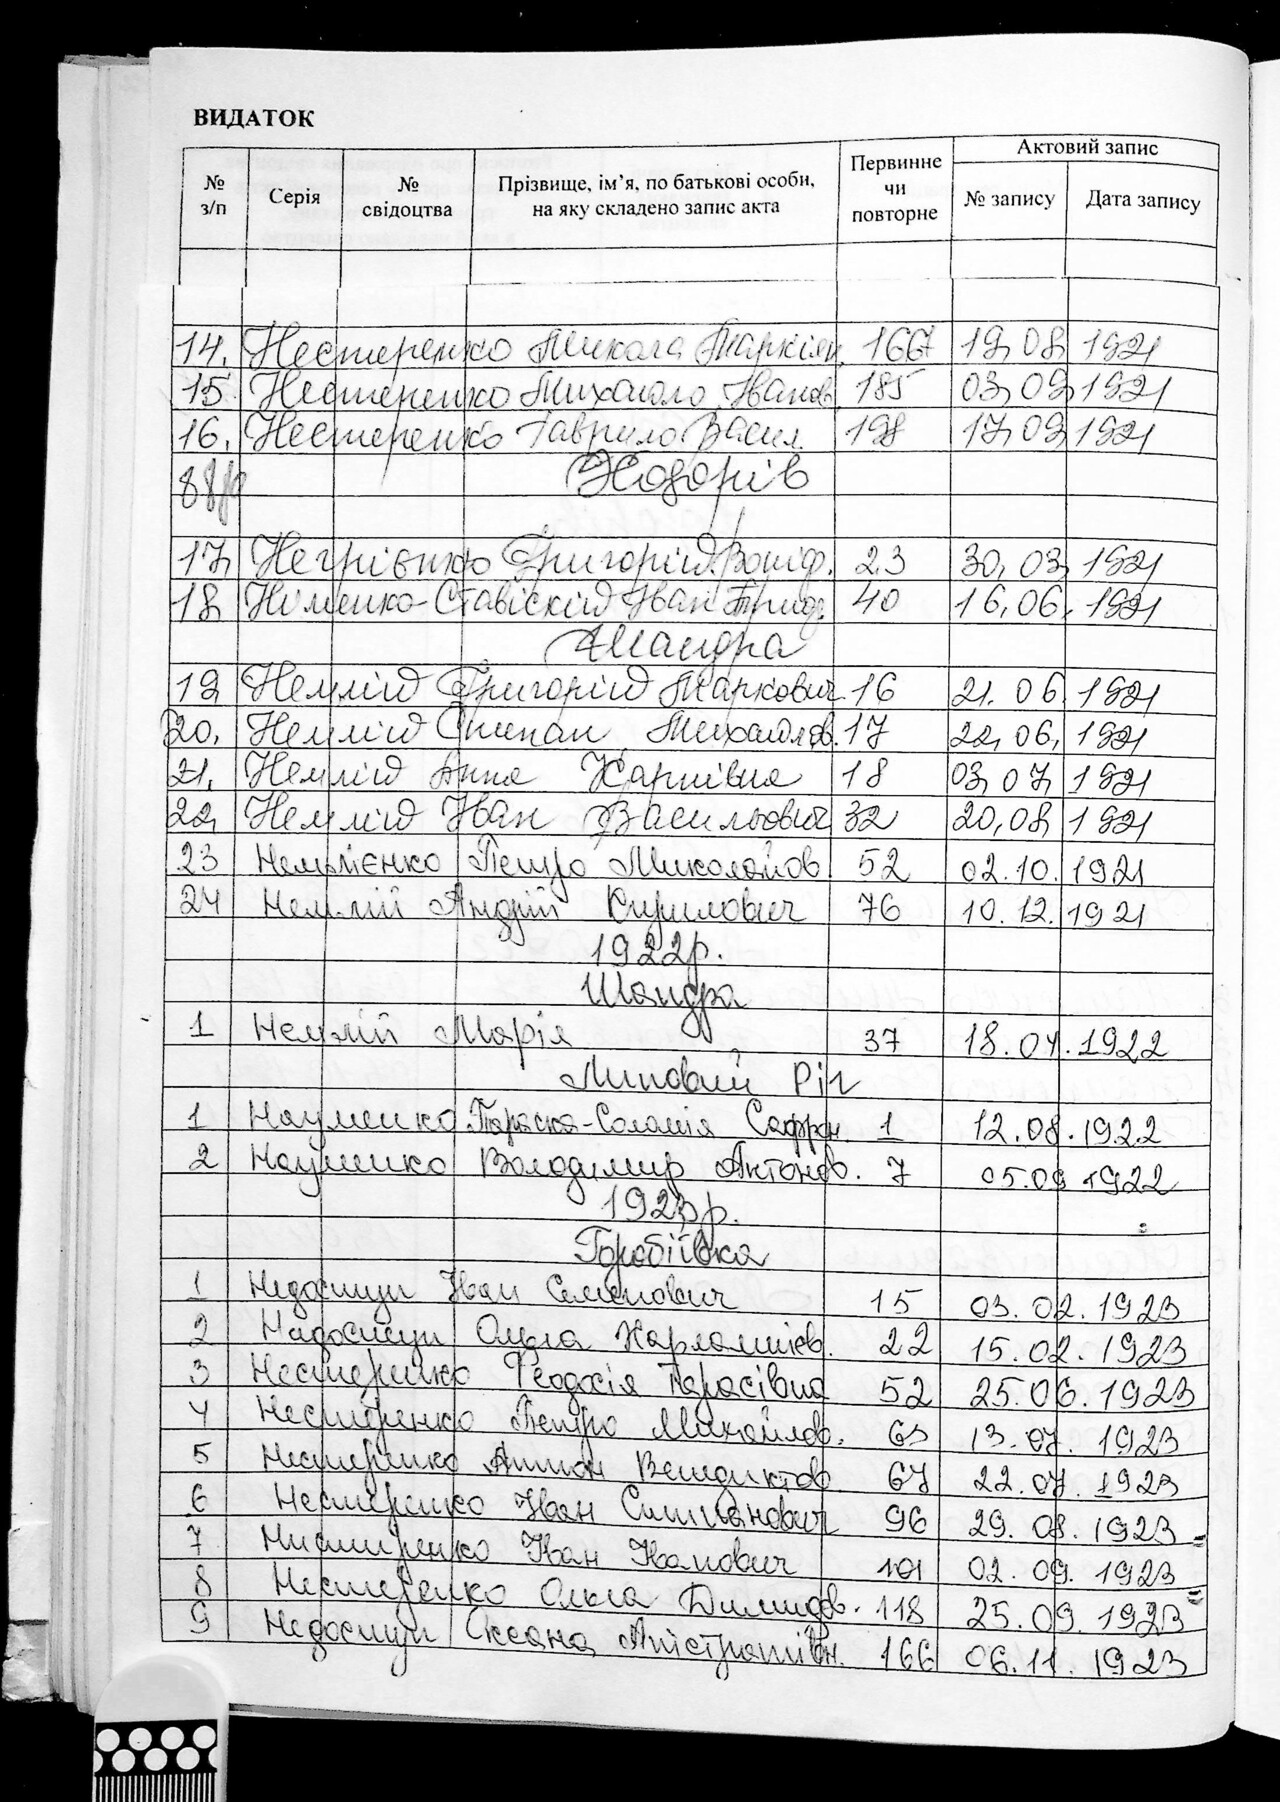 ВИДАТОК
№ з/п Серія № свідоцтва Прізвище, ім’я, по батькові особи, на яку складено запис акта Первинне чи повторне Актовий запис № запису Дата запису
14. Нестеренко Микола Маркіян. 167 19.08 1921
15. Нестеренко Михайло Іванов. 185 03.09 1921
16. Нестеренко Гаврило Васил. 198 17.09 1921
Ходорів
17. Григорій 23 30.03 1921
18. Німенко-Ставіский Іван Григ. 40 16.06. 1921
Шандра
19 Немлій Григорій Маркович 16 21.06 1921
20. Немлій Степан Михайлов. 17 22.06. 1921
21. Немлій Анна Карпівна 18 03.07 1921
22 Немлій Іван Васильович 32 20.08 1921
23 Петро Миколайов 52 02.10. 1921
24 Немлій Андрій Кирилович 76 10.12. 1921
1922р.
Шандра
1 Немлій Марія 37 18.04.1922
Липовий Ріг
1 Науменко Параска-Соломія Сафрон. 1 12.08.1922
2 Науменко Володимир Антонов. 7 05.09 1922
1923р.
Горобіївка
1 Недосищи Іван Семенович 15 03.02.1923
2 Надосищи Ольга Харлампієв. 22 15.02.1923
3 Нестеренко Феодосія Тарасівна 52 25.06.1923
4 Нестеренко Петро Михайлов. 63 13.07.1923
5 Нестеренко Антон Венедиктов 67 22.07.1923
6 Нестеренко Іван Степанович 96 29.08.1923
7 Нестеренко Іван Іванович 101 02.09.1923
8 Нестеренко Ольга Демидов. 118 25.09.1923
9 Недосищи Оксана 166 06.11.1923